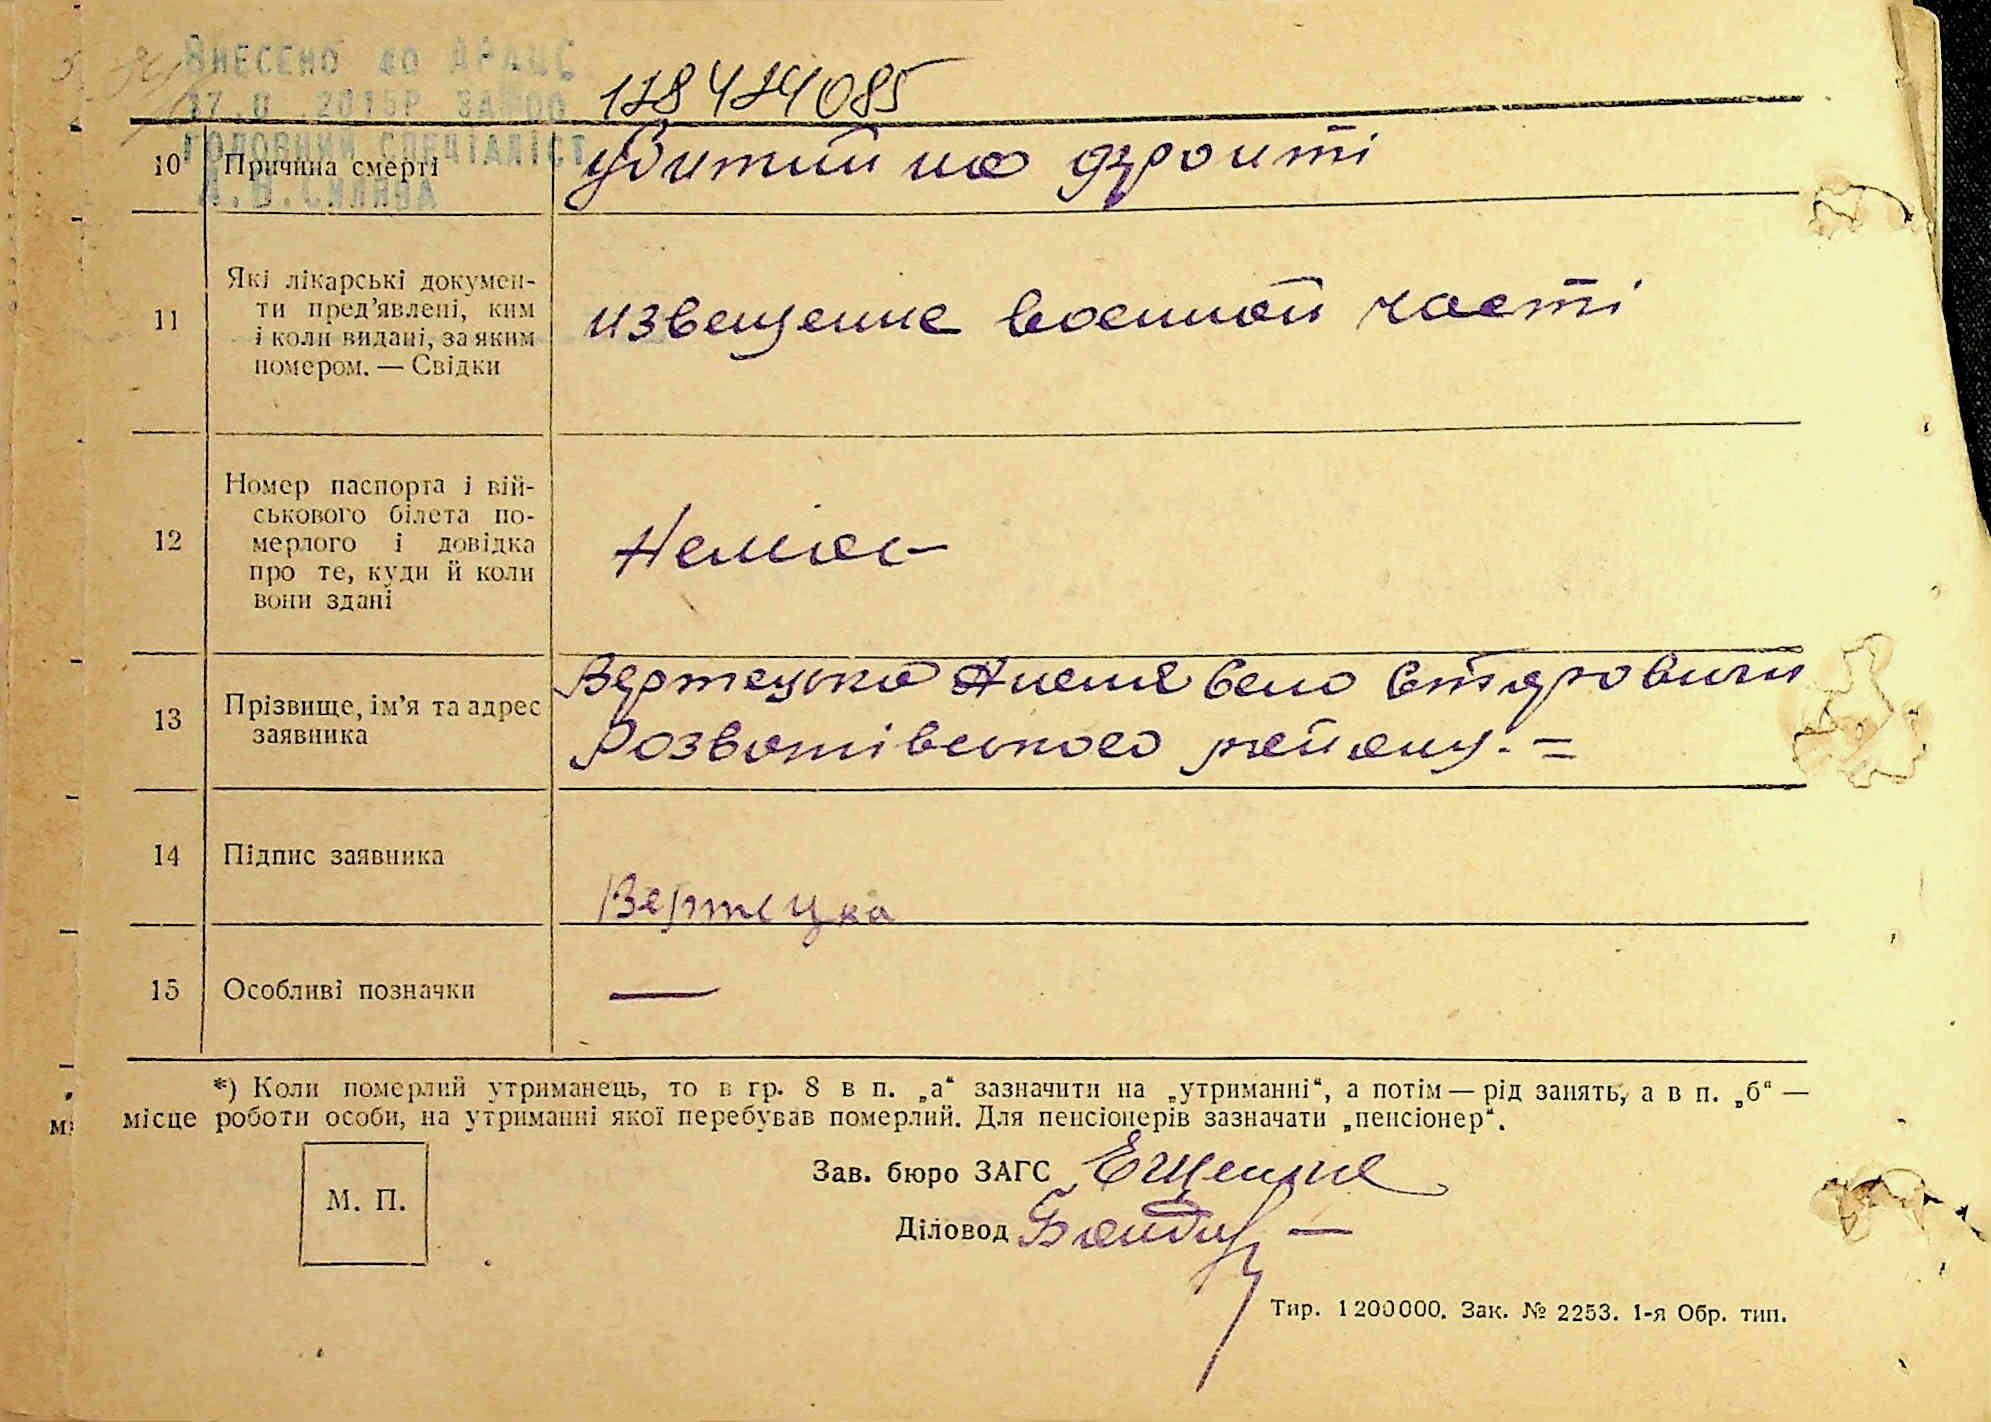 ВНЕСЕНО до ДРАЦС
17.11.2015р ЗА №00
128424085
ГОЛОВНИЙ СПЕЦІАЛІСТ
10 Причина смерті убитий на фронті
11 Які лікарські докумен-
ти пред’явлені, ким
і коли видані, за яким
номером. — Свідки
извещение военной часті
12 Номер паспорта і вій-
ськового білета по-
мерлого і довідка
про те, куди й коли
вони здані
Немає
13 Прізвище, ім’я та адрес
заявника
Вертецька село Старовичи
Розважівського району. =
14 Підпис заявника
Вертецка
15 Особливі позначки —
*) Коли померлий утриманець, то в гр. 8 в п. „а“ зазначити на „утриманні“, а потім — рід занять, а в п. „б“ —
місце роботи особи, на утриманні якої перебував померлий. Для пенсіонерів зазначати „пенсіонер“.
М. П.
Зав. бюро ЗАГС
Діловод
Тир. 1200000. Зак. № 2253. 1-я Обр. тип.